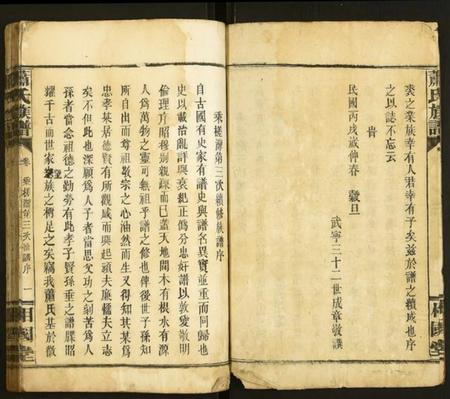 裘之業族幸有人君幸有子矣茲於譜之續成也序
之以誌不忘云
貴
民國丙戌歲仲春 穀旦
武寧三十二世成章敬譔
蕭氏族譜
相國堂
乘槎灣第三次續修族譜序
自古國有史家有譜史與譜名異實並重而同歸也
史以載治亂評與衰犯正偽分忠奸譜以敦愛敬明
倫理序昭穆別親疎而已蓋天地間木有根水有源
人為萬物之靈可無祖乎譜之修也俾後世子孫知
所自出而尊祖敬宗之心油然而生又得知其某為
忠孝某居德賢有所觀感而興起頑夫廉懦夫立志
矣不但此也深願為人子者當思父功之刻苦為人
孫者當念祖德之勤勞有此孝子賢孫垂之譜牒昭
耀千古而世家望族之稱足之矣竊我蕭氏基於微
蕭氏族譜
卷 乘槎灣第三次修譜序 一
相國堂